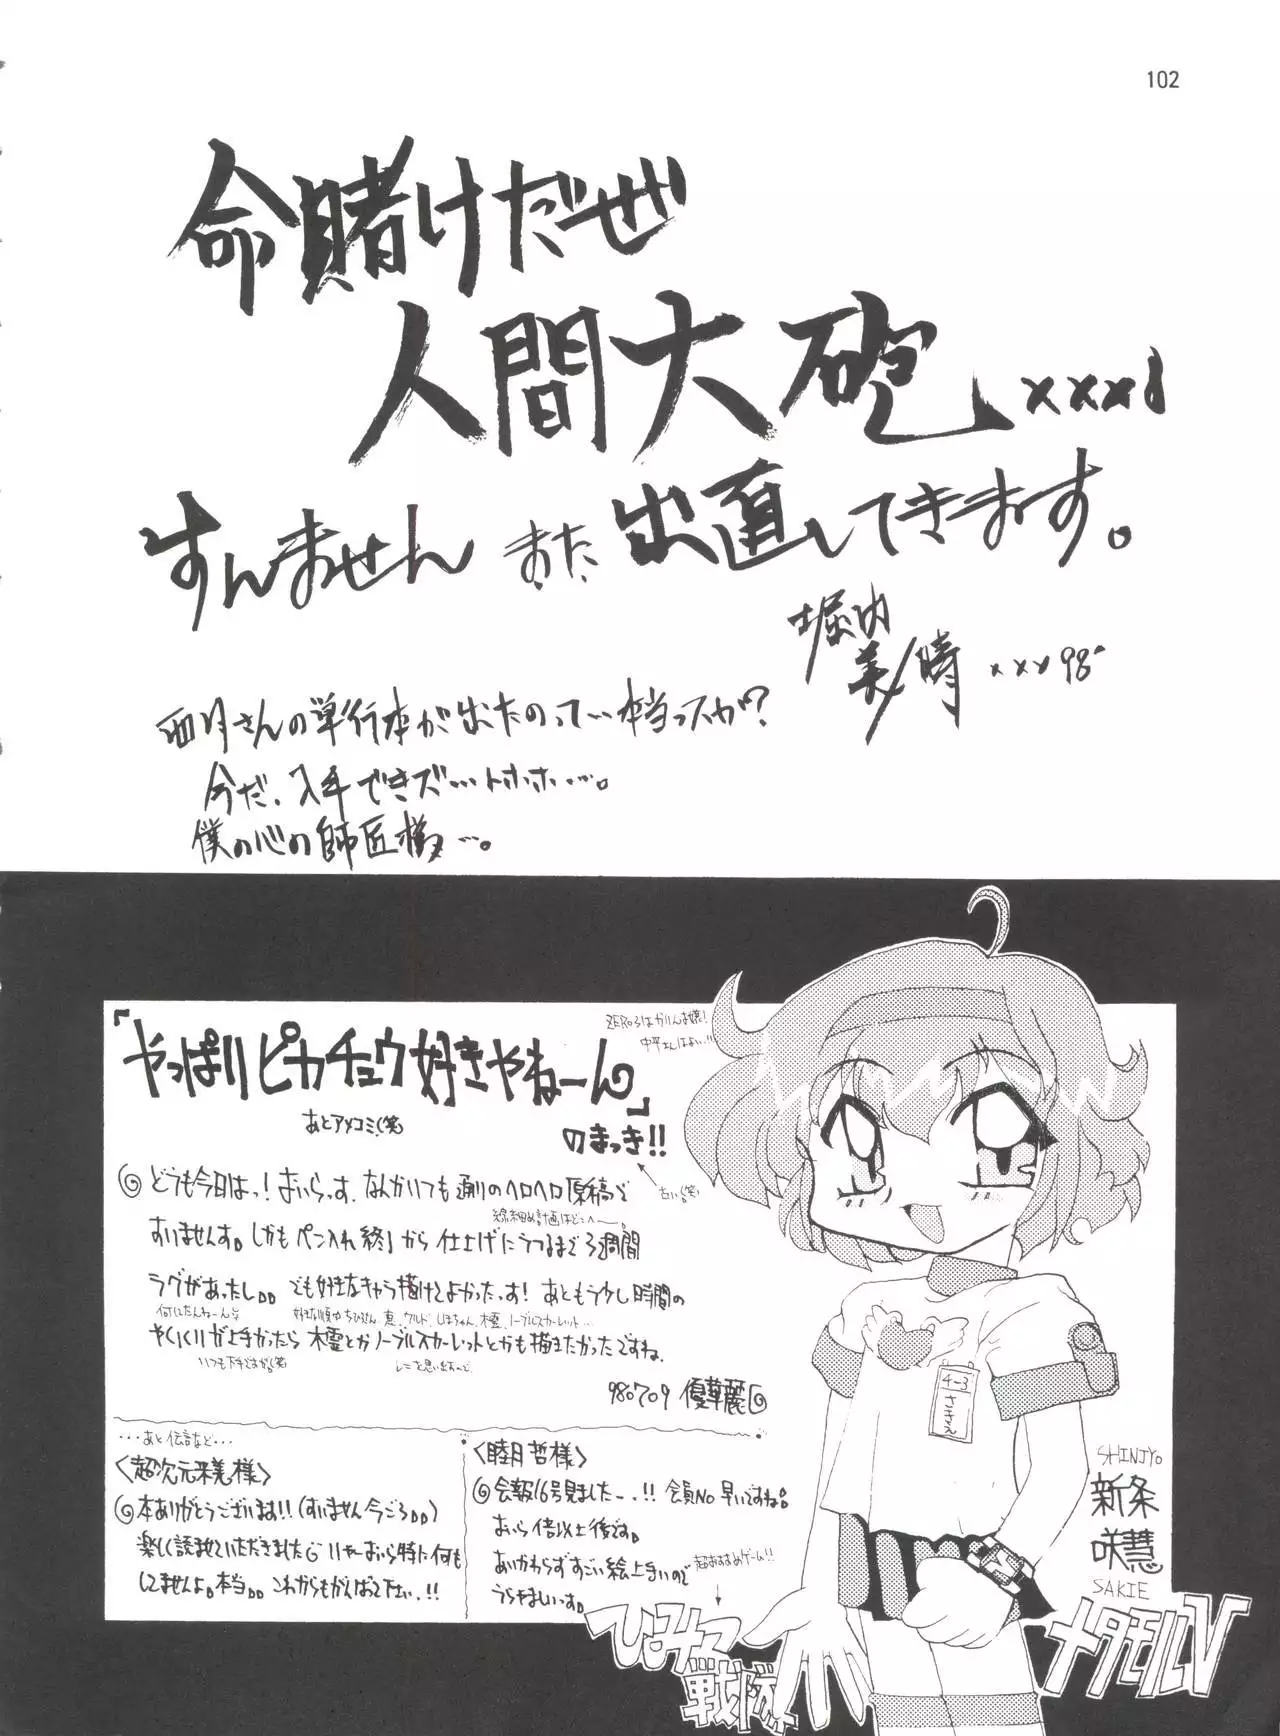 102
命賭けだぜ
人間大砲xxx!
すんません また 出直してきます。
堀内
美晴 xxx98'
西月さんの単行本が出たのって…本当っスか?
今だ、入手できズ…トホホ…。
僕の心の師匠様…。
ZEROろはかりんお嬢!
中平さんはよい!!
「やっぱりピカチュウ好きやねーん」
あとアメコミ(笑)
のまっき!!
古い(笑)
どうも今日はっ! おいらっす。なんかいつも通りのヘロヘロ原稿で
線細め計画はどこへ〜。
すいませんす。しかもペン入れ終了から仕上げにうつるまで3週間
ラグがあったし。。でも好きなキャラ描けてよかったっす! あともう少し時間の
何してたんねーん
やりくりが上手かったら 木霊とかノーブルスカーレットとかも描きたかったですね。
いつも下手ですが(笑)
980709 優華麗
…あと伝言など…
〈超次元釆美様〉
本ありがとうございます!!(すいません今ごろ。。)
楽しく読ませていただきました いやーおいら特に何も
してませんよ。本当。。これからもがんばって下さい!!
〈睦月哲様〉
会報16号見ました〜!! 会員No 早いですね。
おいら倍以上後です。
あいかわらずすごい絵上手いので
うらやましいっす。
超おすすめゲーム!!
4-3
さきえ
SHINJYO
新条
咲慧
SAKIE
ひみつ
戦隊
メタモルV